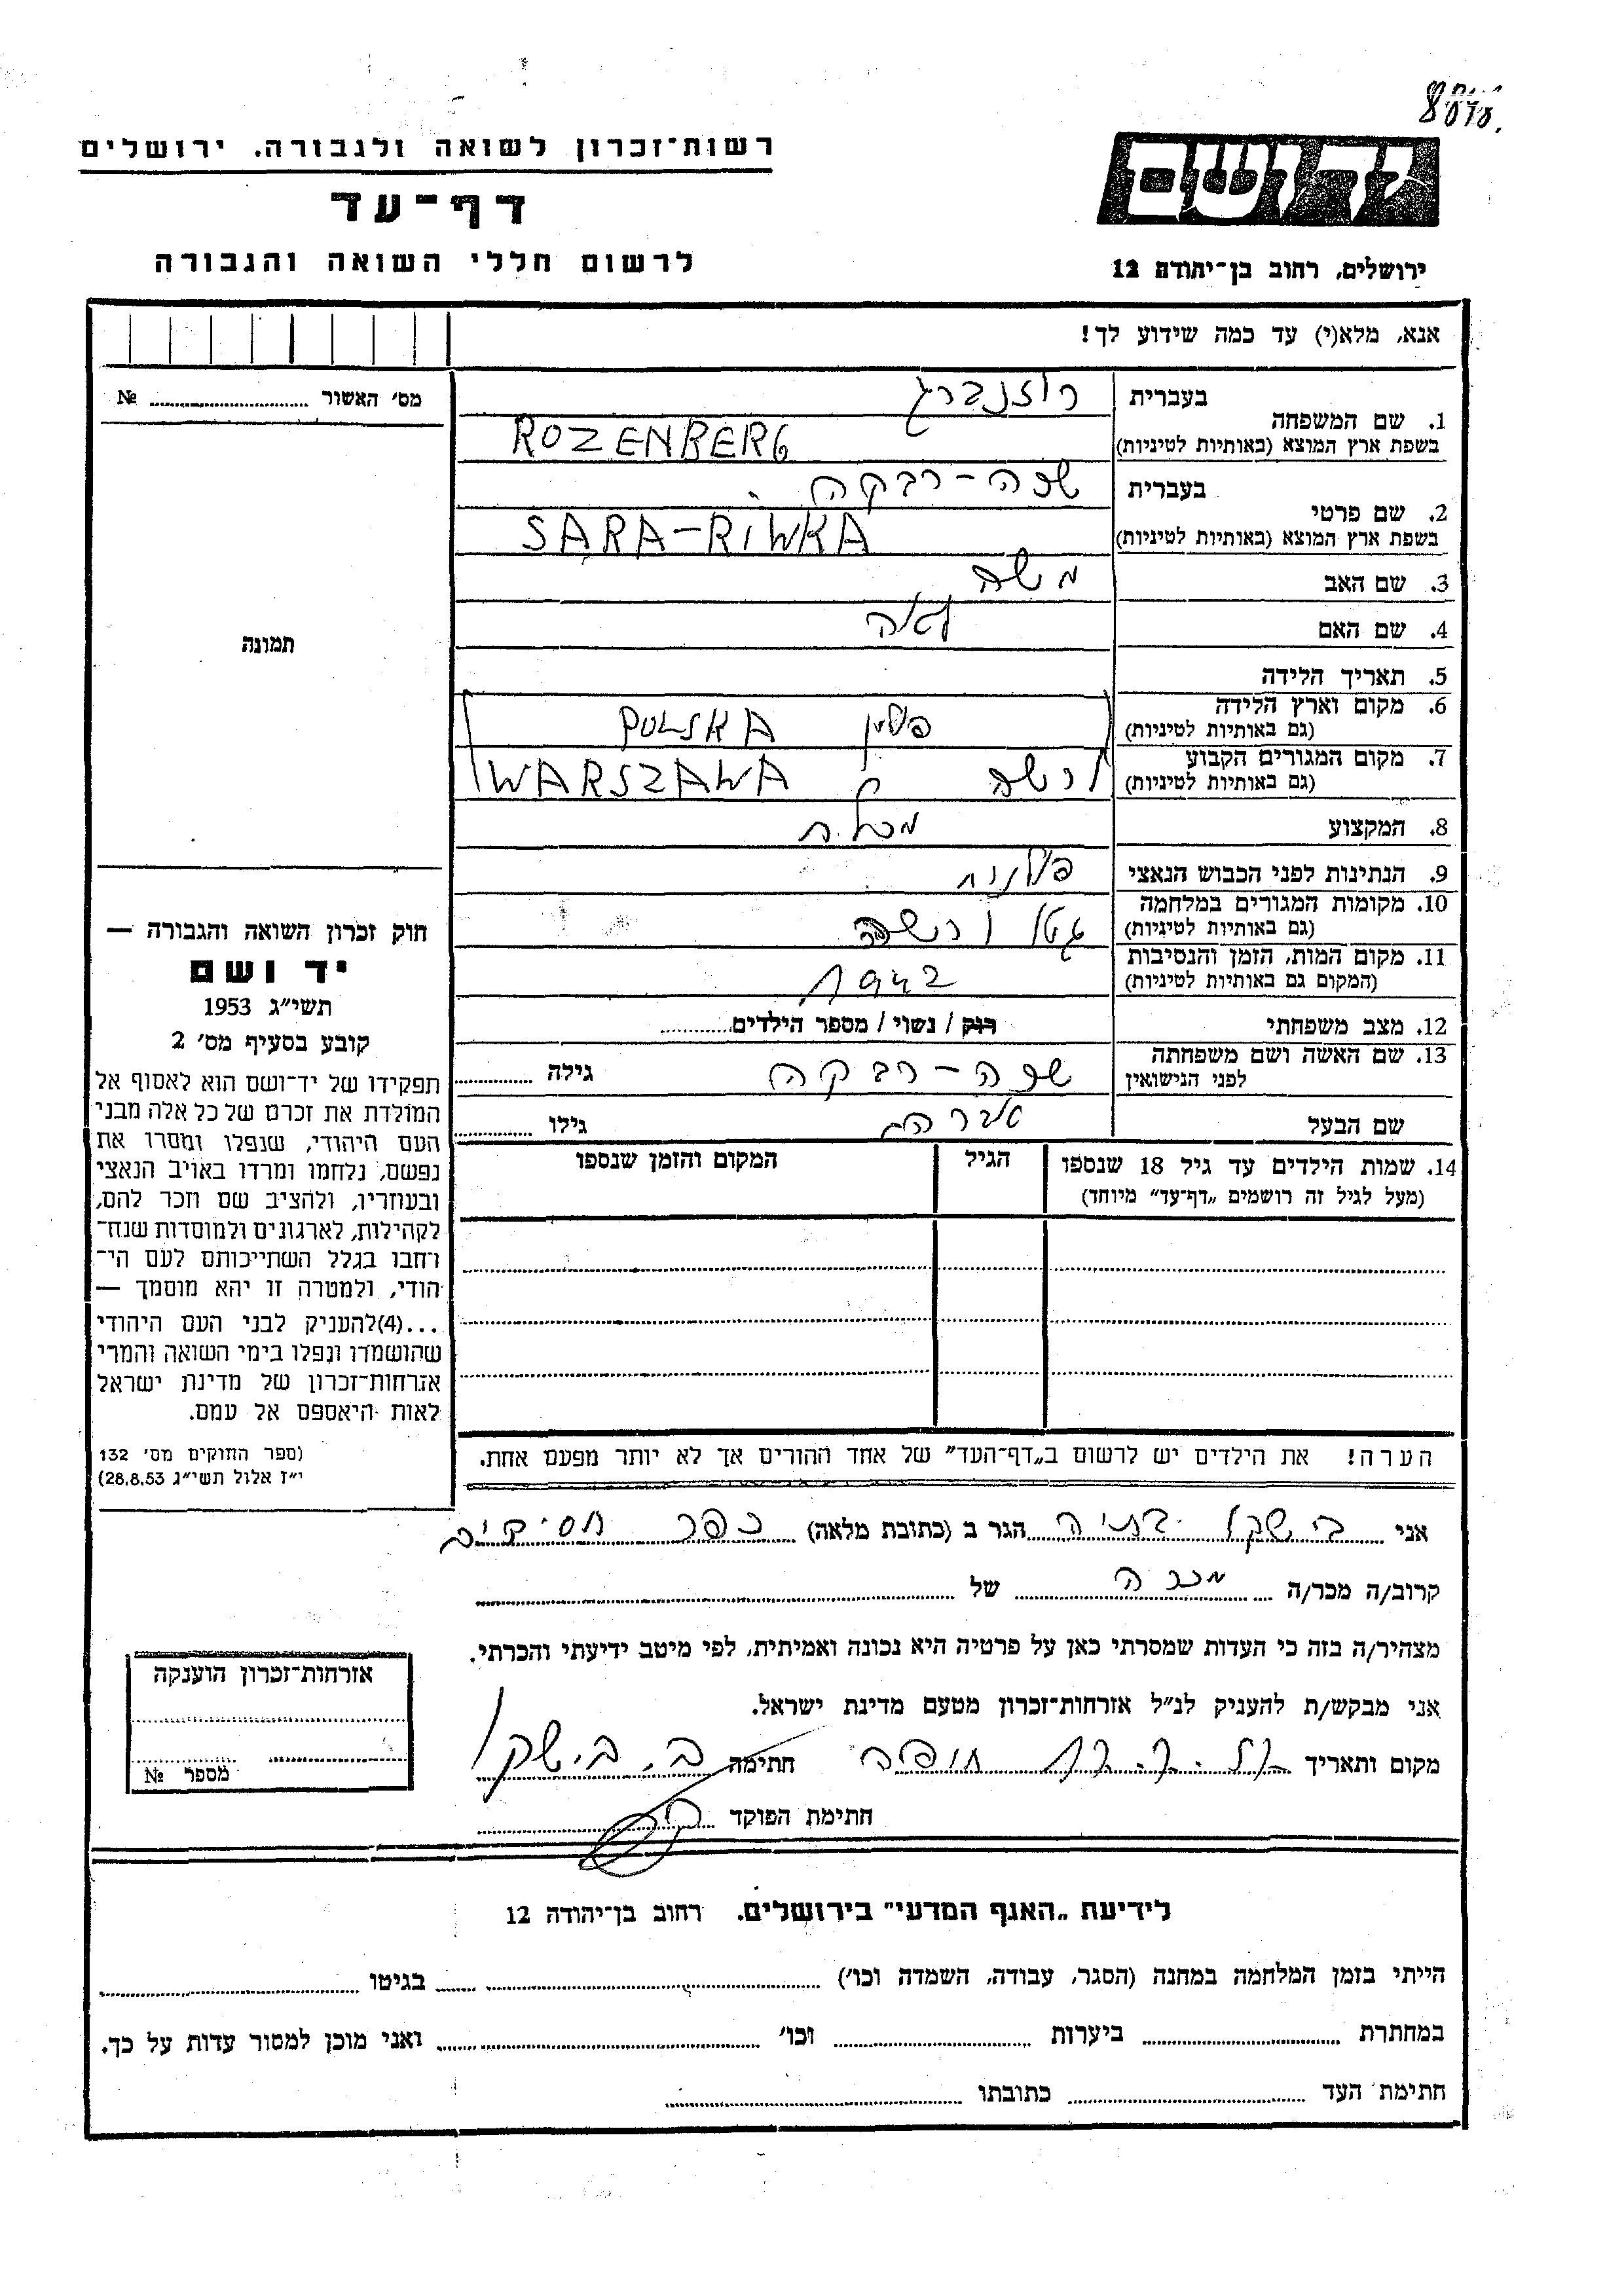 רשות־זכרון לשואה ולגבורה. ירושלים
דף־עד
לרשום חללי השואה והגבורה
ירושלים, רחוב בן־יהודה 12
אנא, מלא(י) עד כמה שידוע לך!
מס׳ האשור № 
תמונה
בעברית רוזנברג
1. שם המשפחה
בשפת ארץ המוצא (באותיות לטיניות) ROZENBERG
בעברית שרה-רבקה
2. שם פרטי
בשפת ארץ המוצא (באותיות לטיניות) SARA-RIWKA
3. שם האב משה
4. שם האם לאה
5. תאריך הלידה
6. מקום וארץ הלידה
(גם באותיות לטיניות) פולין POLSKA
7. מקום המגורים הקבוע
(גם באותיות לטיניות) ורשה WARSZAWA
8. המקצוע
9. הנתינות לפני הכבוש הנאצי פולנית
10. מקומות המגורים במלחמה
(גם באותיות לטיניות) גטו ורשה
11. מקום המות, הזמן והנסיבות
(המקום גם באותיות לטיניות) 1942
12. מצב משפחתי רוק / נשוי / מספר הילדים
13. שם האשה ושם משפחתה
לפני הנישואין שרה-רבקה גילה
שם הבעל אברהם גילו
14. שמות הילדים עד גיל 18 שנספו הגיל המקום והזמן שנספו
(מעל לגיל זה רושמים „דף־עד״ מיוחד)
הערה! את הילדים יש לרשום ב„דף־העד״ של אחד ההורים אך לא יותר מפעם אחת.
חוק זכרון השואה והגבורה —
יד ושם
תשי״ג 1953
קובע בסעיף מס׳ 2
תפקידו של יד־ושם הוא לאסוף אל
המולדת את זכרם של כל אלה מבני
העם היהודי, שנפלו ומסרו את
נפשם, נלחמו ומרדו באויב הנאצי
ובעוזריו, ולהציב שם וזכר להם,
לקהילות, לארגונים ולמוסדות שנח־
רחבו בגלל השתייכותם לעם הי־
הודי, ולמטרה זו יהא מוסמך —
...(4)להעניק לבני העם היהודי
שהושמדו ונפלו בימי השואה והמרי
אזרחות־זכרון של מדינת ישראל
לאות היאספם אל עמם.
(ספר החוקים מס׳ 132
י״ז אלול תשי״ג 28.8.53)
אני בתיה הגר ב (כתובת מלאה) כפר חסידים
קרוב/ה מכר/ה מכרה של
מצהיר/ה בזה כי העדות שמסרתי כאן על פרטיה היא נכונה ואמיתית, לפי מיטב ידיעתי והכרתי.
אני מבקש/ת להעניק לנ״ל אזרחות־זכרון מטעם מדינת ישראל.
מקום ותאריך חיפה חתימה
חתימת הפוקד
אזרחות־זכרון הוענקה
מספר №
לידיעת „האגף המדעי״ בירושלים. רחוב בן־יהודה 12
הייתי בזמן המלחמה במחנה (הסגר, עבודה, השמדה וכו׳) בגיטו
במחתרת ביערות וכו׳ ואני מוכן למסור עדות על כך.
חתימת העד כתובתו